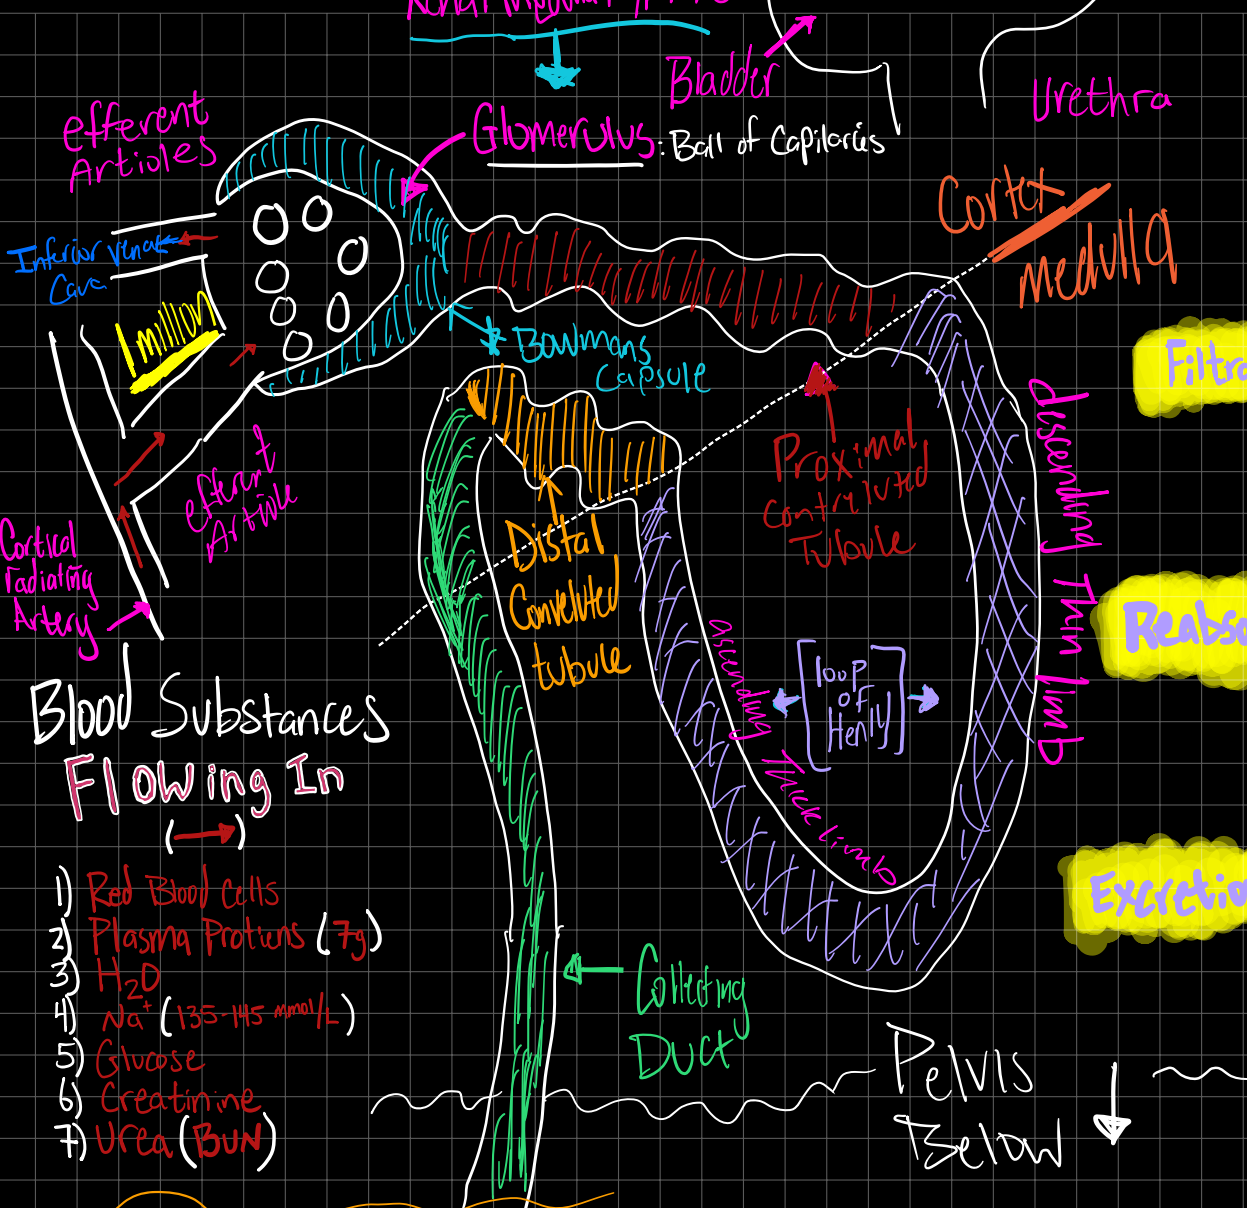 Bladder
Urethra
efferent
Artioles
Glomerulus: Ball of Capilaries
Cortex
medulla
Inferior vena
Cava
1 million
Bowmans
Capsule
Filtra
efferent
Artiole
Proximal
Contvluted
Tubule
discending Thin limb
Cortical
radiating
Artery
Distal
Convoluted
tubule
Reabso
ascending Thick limb
loop
of
Henly
Blood Substances
Flowing In
1) Red Blood Cells
2) Plasma Protiens (7g)
3) H₂O
4) Na⁺ (135-145 mmol/L)
5) Glucose
6) Creatinine
7) Urea (BUN)
Excretion
Collecting
Duct
Pelvis
Below